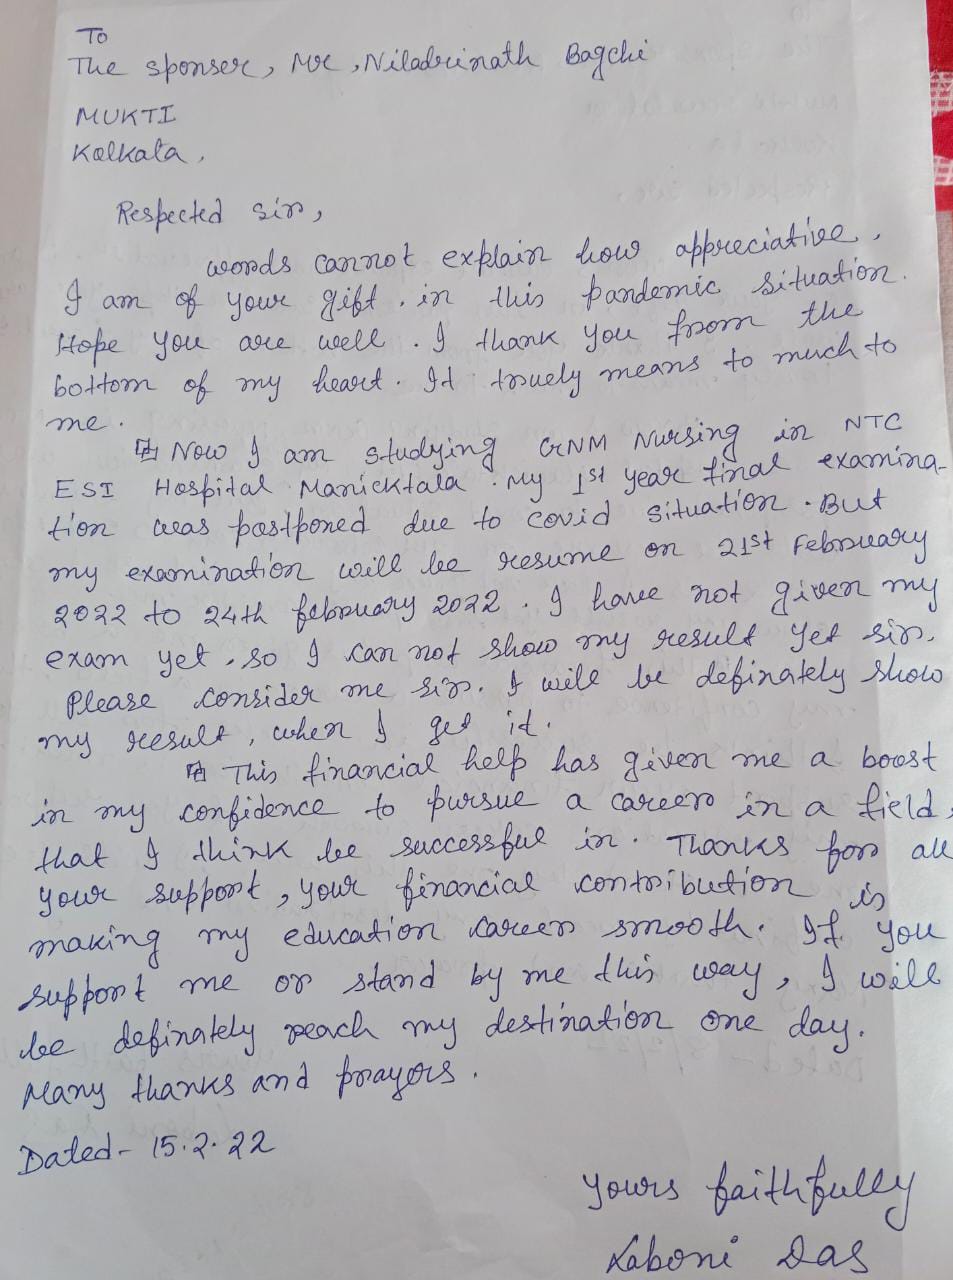 To
The sponser, Mr, Niladrinath Bagchi
MUKTI
Kolkata,
Respected sir,
words cannot explain how appreciative,
I am of your gift. in this pandemic situation.
Hope you are well. I thank you from the
bottom of my heart. It truely means to much to
me.
Now I am studying GNM Nursing in NTC
ESI Hospital Manicktala. My 1st year final examina-
tion was postponed due to covid situation. But
my examination will be resume on 21st February
2022 to 24th february 2022. I have not given my
exam yet, so I can not show my result yet sir.
Please consider me sir. I will be definately show
my result, when I get it.
This financial help has given me a boost
in my confidence to pursue a career in a field,
that I think be successful in. Thanks for all
your support, your financial contribution is
making my education career smooth. If you
support me or stand by me this way, I will
be definately reach my destination one day.
Many thanks and prayers.
Dated- 15.2.22
Yours faithfully
Laboni Das